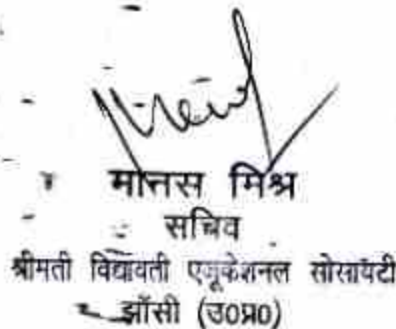 मानस मिश्र
सचिव
श्रीमती विद्यावती एजूकेशनल सोसायटी
झाँसी (उ0प्र0)